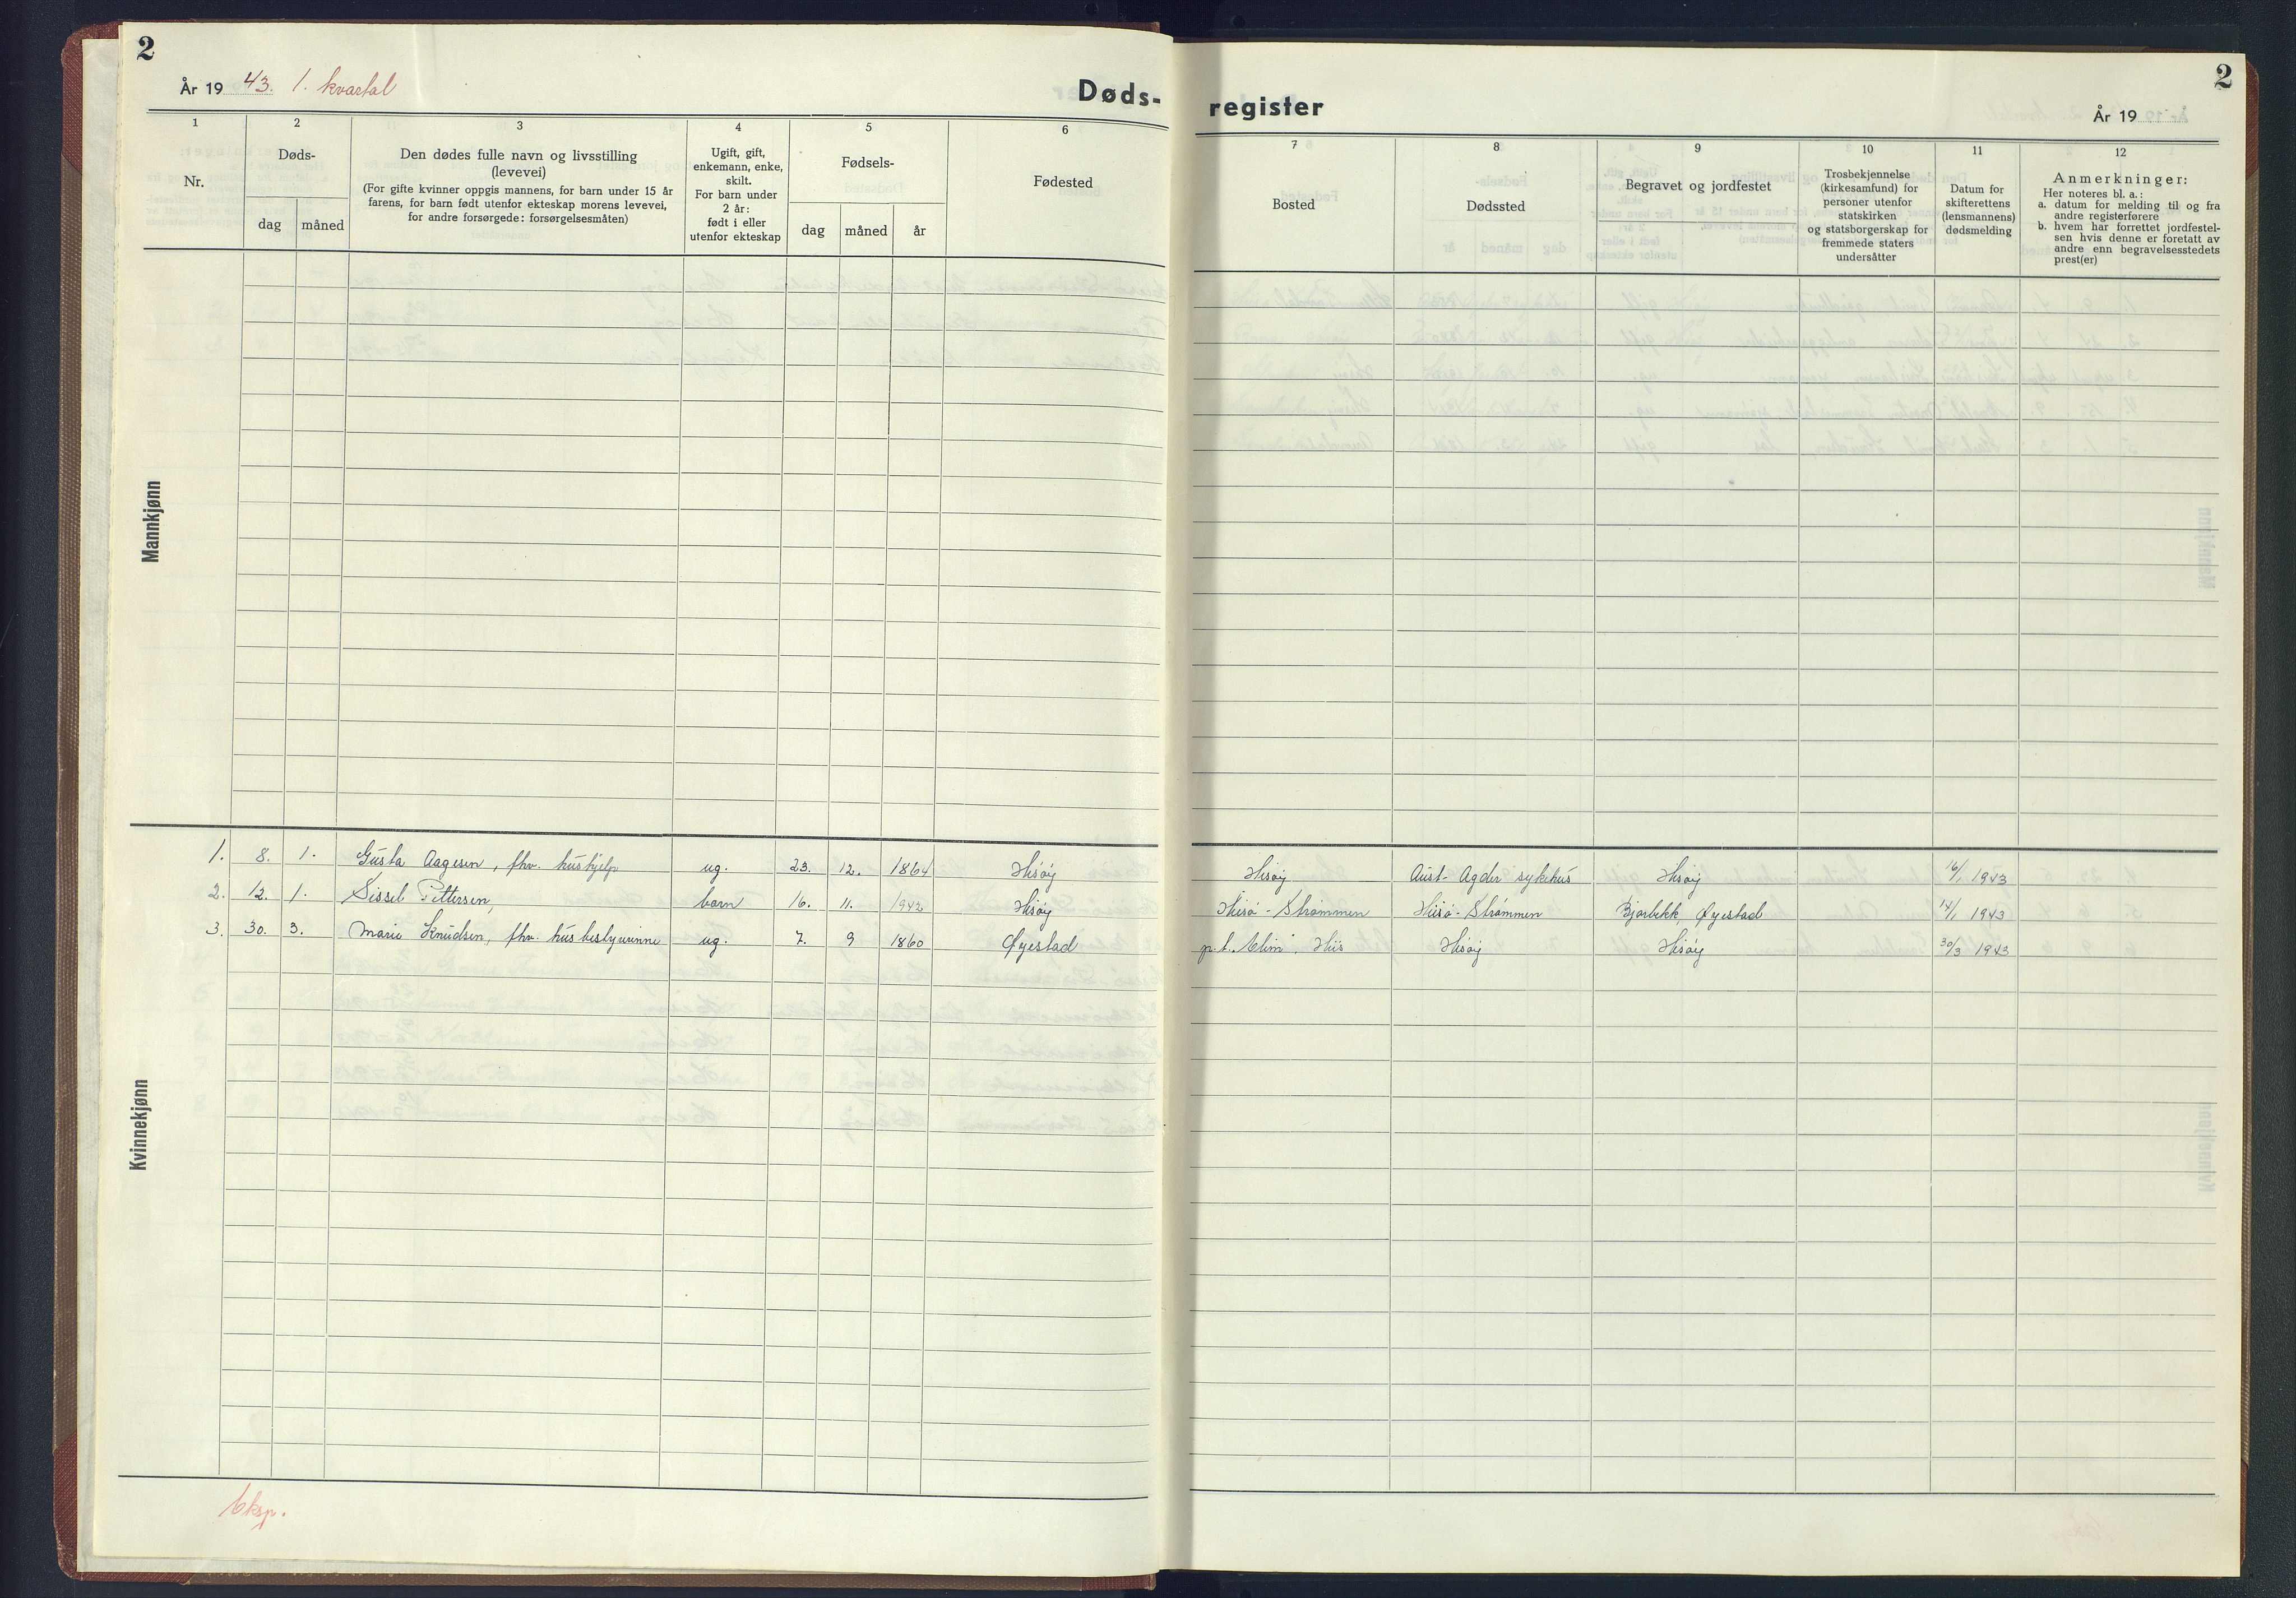 2
År 19 43. 1. kvartal
Døds-
1
2
3
4
5
6
Nr.
Døds-
dag
måned
Den dødes fulle navn og livsstilling
(levevei)
(For gifte kvinner oppgis mannens, for barn under 15 år
farens, for barn født utenfor ekteskap morens levevei,
for andre forsørgede: forsørgelsesmåten)
Ugift, gift,
enkemann, enke,
skilt.
For barn under
2 år:
født i eller
utenfor ekteskap
Fødsels-
dag
måned
år
Fødested
Mannkjønn
1. 8. 1. Gusta Aagesen, fhv. hushjelp ug. 23. 12. 1864 Hisøy
2. 12. 1. Sissel Pettersen, barn 16. 11. 1942 Hisøy
3. 30. 3. Marie Knudsen, fhv. husbestyrerinne ug. 7. 9 1860 Øyestad
Kvinnekjønn
Eksp.
2
register
År 19
7
8
9
10
11
12
Bosted
Dødssted
Begravet og jordfestet
Trosbekjennelse
(kirkesamfund) for
personer utenfor
statskirken
og statsborgerskap for
fremmede staters
undersåtter
Datum for
skifterettens
(lensmannens)
dødsmelding
Anmerkninger:
Her noteres bl. a.:
a. datum for melding til og fra
andre registerførere
b. hvem har forrettet jordfestel-
sen hvis denne er foretatt av
andre enn begravelsesstedets
prest(er)
Hisøy Aust-Agder sykehus Hisøy 16/1 1943
Hisø-Strømmen Hisø-Strømmen Bjorbekk, Øyestad 14/1 1943
p.t. "Elim", His Hisøy Hisøy 30/3 1943